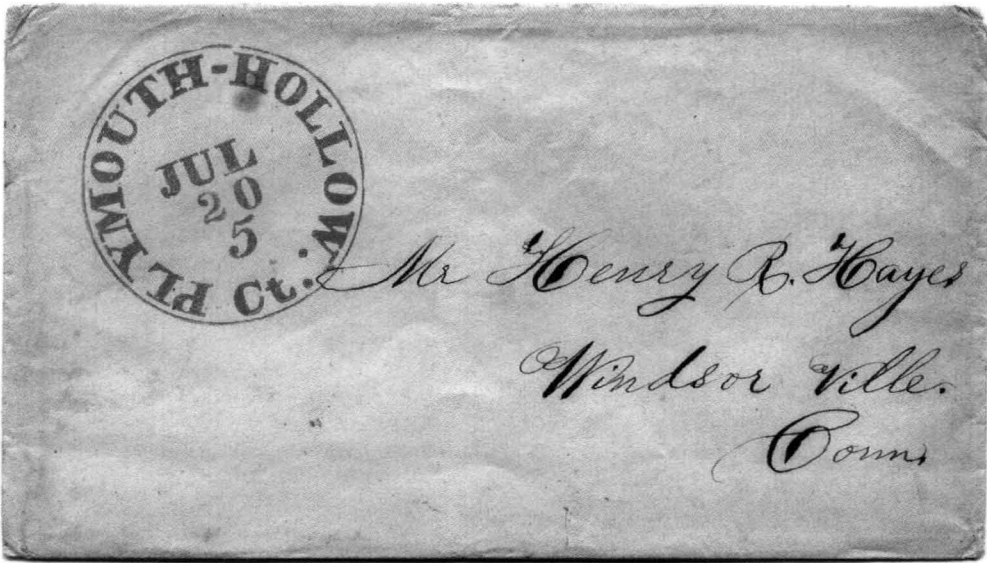 PLYMOUTH-HOLLOW. Ct.
JUL
20
5
Mr Henry R. Hayes
Windsor Ville.
Conn.